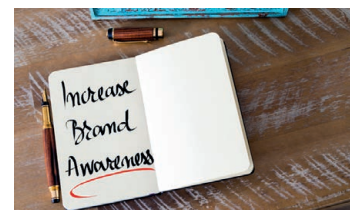 Increase
Brand
Awareness